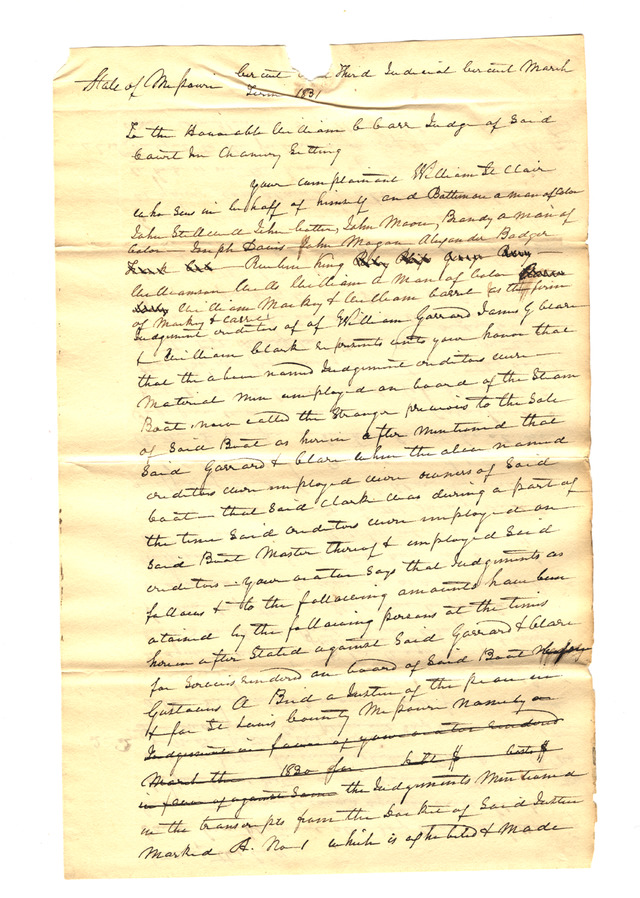 State of Missouri Circuit Third Judicial Circuit March
Term 1831
To the Honourable William C Carr Judge of Said
Court In Chancery Sitting
Your complainant William St Clair
who Sues in behalf of himself and Baltimore a man of Color
John Cotter, John Moore, Brandy a man of
Color - Joseph Davis - John Magan Alexander Badger
Reuben King
Williamson William a Man of Color
William Markey & William Carrel as the firm
of Markey & Carrel
Judgement creditors of of William Garrard James G Clare
& William Clark represents unto your honor that
that the above named Judgement creditors were
Material Men employed on board of the Steam
Boat, now called the Stranger previous to the Sale
of Said Boat as herein after Mentioned that
Said Garrard & Clare when the above named
creditors were employed were owners of Said
boat - that Said Clark was during a part of
the time Said creditors were employed on
Said Boat Master thereof & employed Said
creditors - Your orator Says that Judgments as
follows & to the following amounts have been
obtained by the following persons at the times
herein after Stated against Said Garrard & Clare
for Services rendered on board of Said Boat
Gustavus A Bird a Justice of the peace in
& for St Louis County Missouri Namely
Judgement in favor of your orator rendered
March the 1830 for debt $ Costs $
in favor of against Same the Judgments Mentioned
in the transcripts from the Docket of Said Justice
Marked A. No 1 which is exhibited & Made